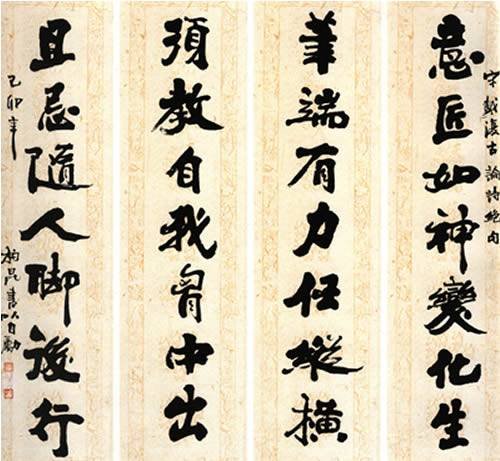 宋戴復古論詩絶句
意匠如神變化生
筆端有力任縱横
須教自我胷中出
且忌隨人脚後行
己卯年
柏昆書以自勵